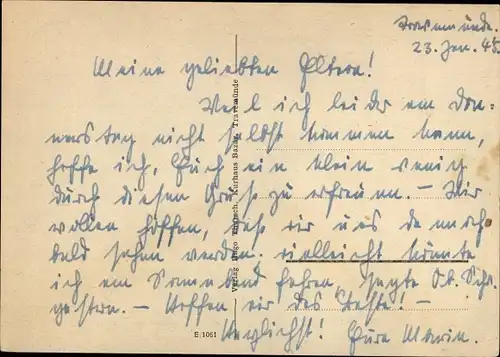 Travemünde.
23. Jan. 45.
Meine geliebten Eltern!
Weil ich leider am Don-
nerstag nicht selbst kommen kann,
hoffe ich, Euch ein klein wenig
durch diesen Gruss zu erfreuen. – Wir
wollen hoffen, dass wir uns demnach
bald sehen werden. vielleicht könnte
ich am Sonnabend fahren, sagte Ob.
gestern. – Hoffen wir das Beste! –
Herzlichst! Eure Marin.
Verlag Hugo Kurhaus Bazar, Travemünde
E.1061